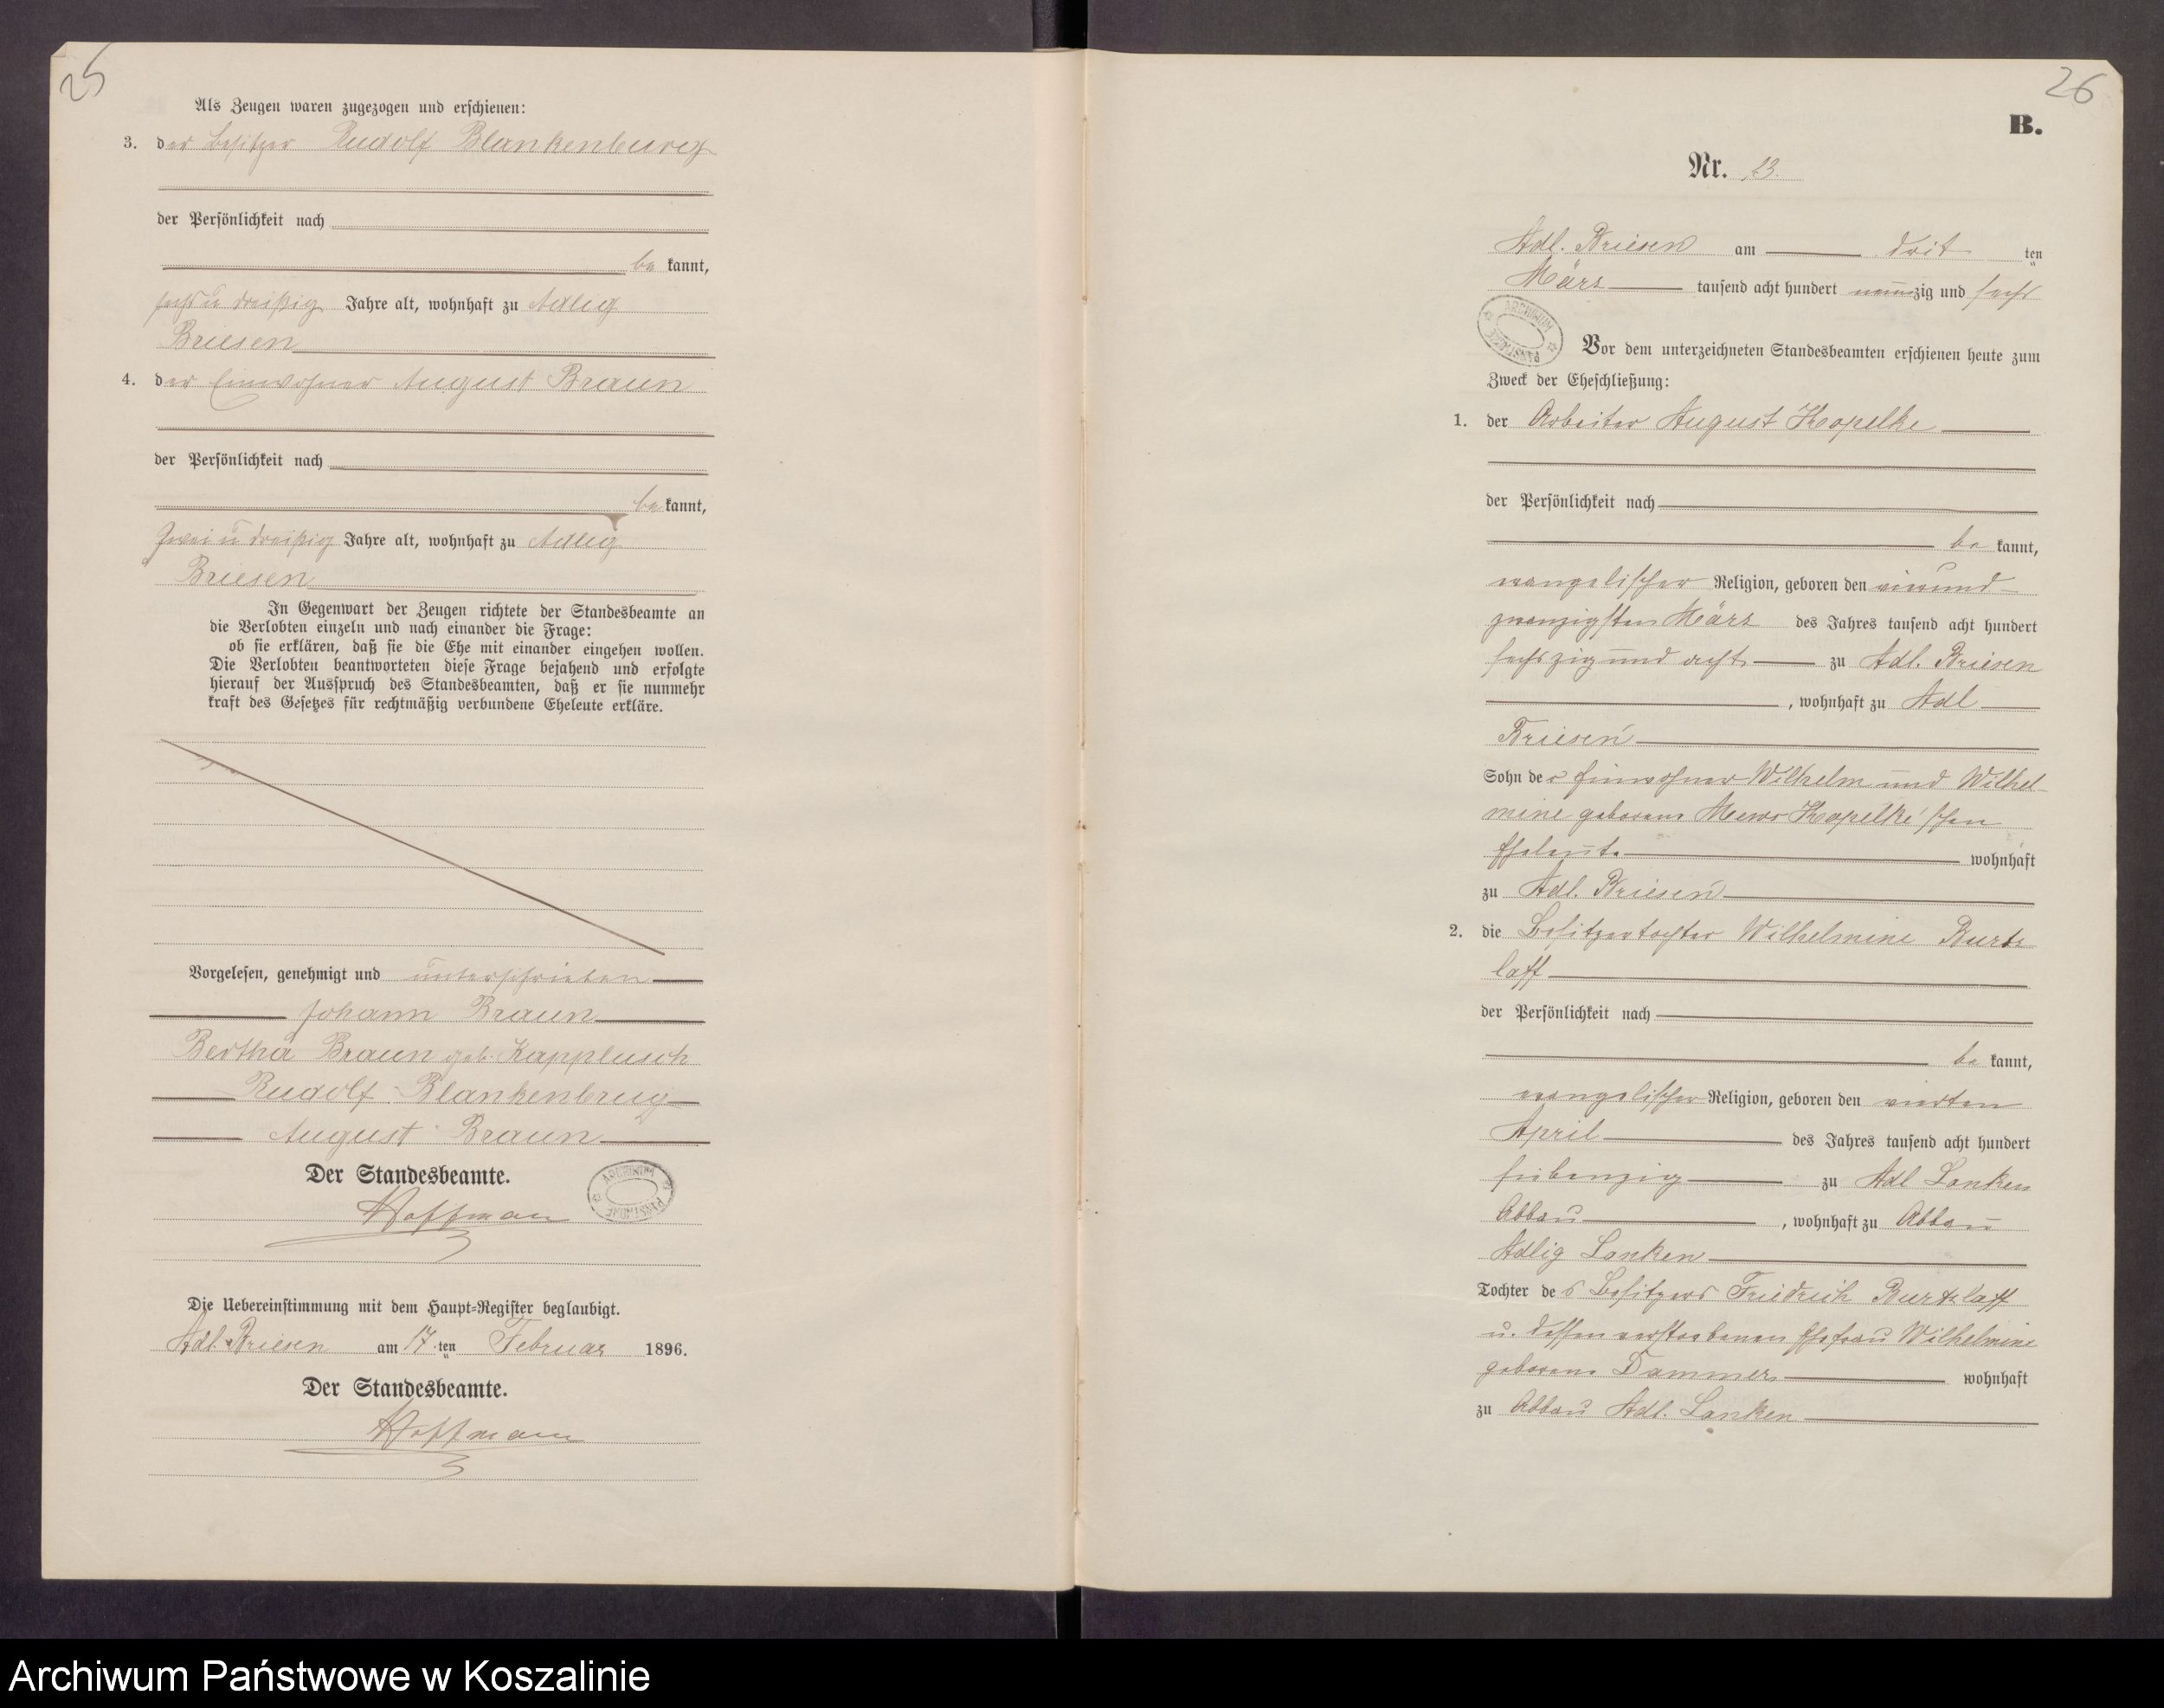 25
Als Zeugen waren zugezogen und erschienen:
3. der Besitzer Rudolf Blankenburg
der Persönlichkeit nach
be kannt,
sechs u dreißig Jahre alt, wohnhaft zu Adlig
Briesen
4. der Einwohner August Braun
der Persönlichkeit nach
be kannt,
zwei u dreißig Jahre alt, wohnhaft zu Adlig
Briesen
In Gegenwart der Zeugen richtete der Standesbeamte an
die Verlobten einzeln und nach einander die Frage:
ob sie erklären, daß sie die Ehe mit einander eingehen wollen.
Die Verlobten beantworteten diese Frage bejahend und erfolgte
hierauf der Ausspruch des Standesbeamten, daß er sie nunmehr
kraft des Gesetzes für rechtmäßig verbundene Eheleute erkläre.
Vorgelesen, genehmigt und unterschrieben
Johann Braun
Bertha Braun geb. Kapplusch
Rudolf Blankenbrug
August Braun
Der Standesbeamte.
Hoffman
ARCHIWUM PAŃSTWOWE
Die Uebereinstimmung mit dem Haupt-Register beglaubigt.
Adl. Briesen am 17 ten Februar 1896.
Der Standesbeamte.
Hoffmann
26
B.
Nr. 23.
Adl. Briesen am drit ten
März tausend acht hundert neunzig und sechs
ARCHIWUM PAŃSTWOWE
Vor dem unterzeichneten Standesbeamten erschienen heute zum
Zweck der Eheschließung:
1. der Arbeiter August Kopelke
der Persönlichkeit nach
be kannt,
evangelischer Religion, geboren den vierund-
zwanzigsten März des Jahres tausend acht hundert
sechszig und acht zu Adl. Briesen
, wohnhaft zu Adl
Briesen
Sohn der Einwohner Wilhelm und Wilhel-
mine geborene Mews Kopelke'schen
Eheleute wohnhaft
zu Adl. Briesen
2. die Besitzertochter Wilhelmine Burtz
laff
der Persönlichkeit nach
be kannt,
evangelischer Religion, geboren den vierten
April des Jahres tausend acht hundert
siebenzig zu Adl Lanken
Abbau , wohnhaft zu Abbau
Adlig Lanken
Tochter des Besitzers Friedrich Burtzlaff
u. dessen verstorbenen Ehefrau Wilhelmine
geborene Dammer wohnhaft
zu Abbau Adl. Lanken
Archiwum Państwowe w Koszalinie